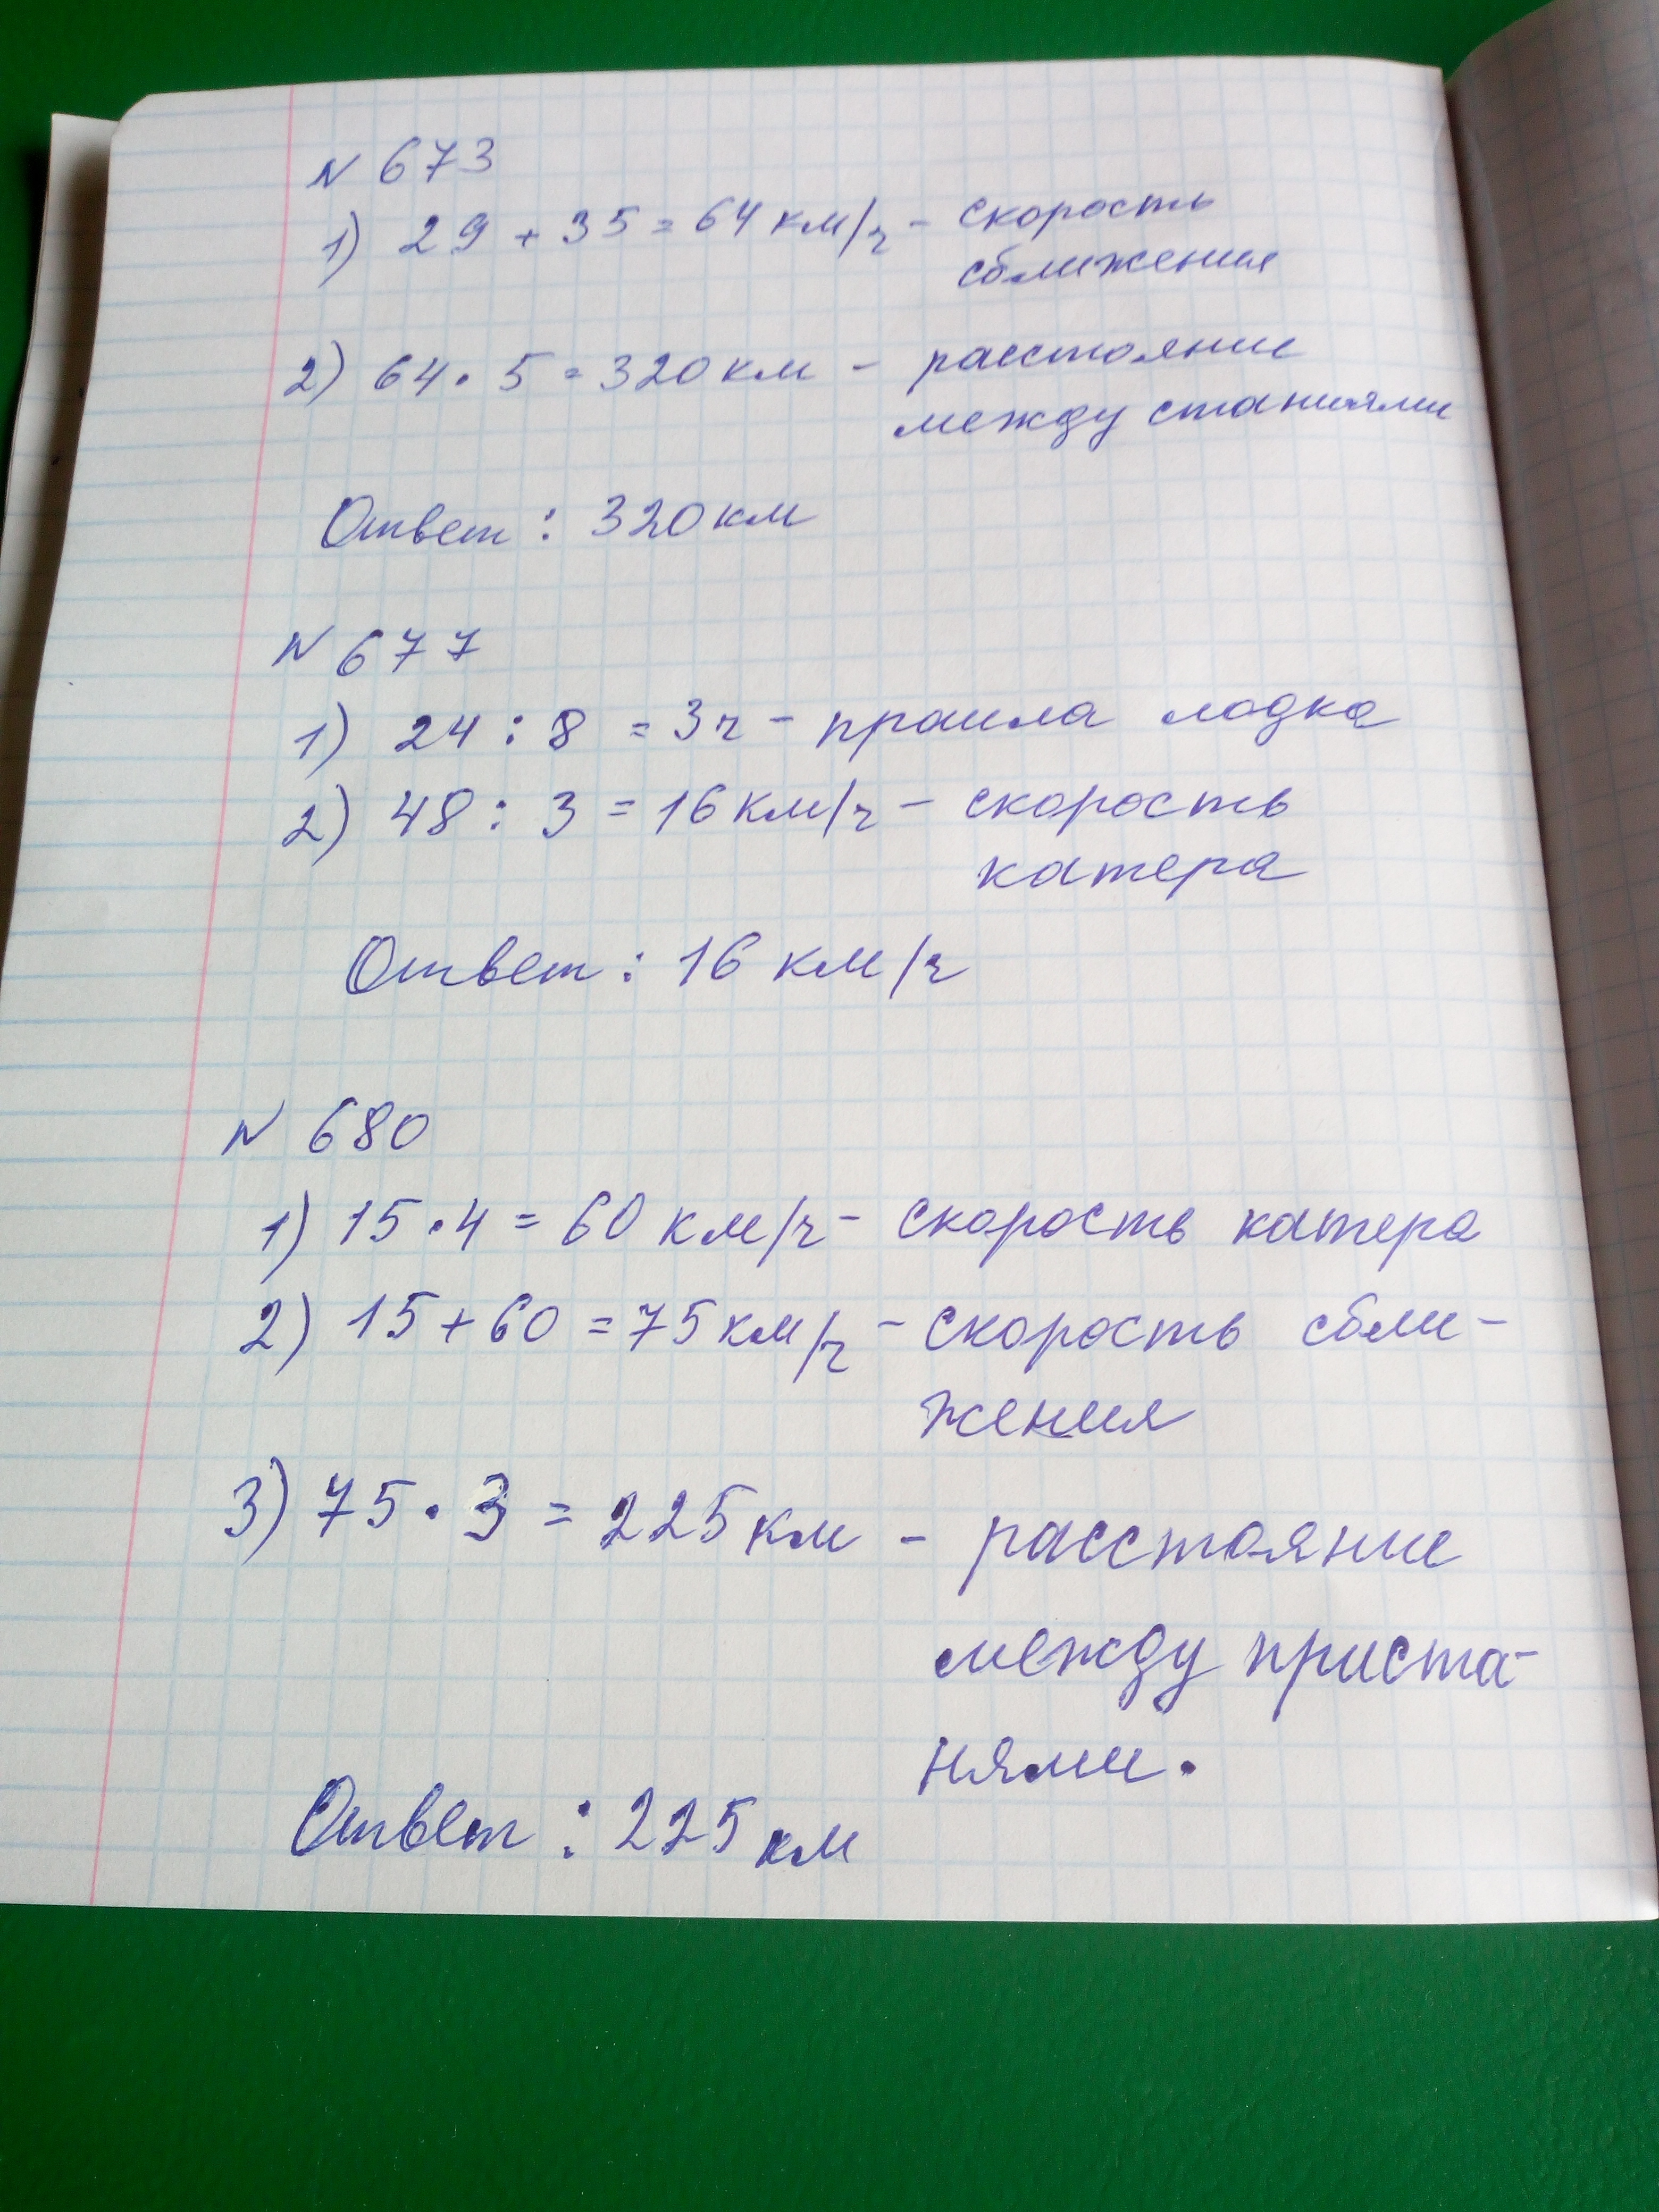 N 673
1) 29 + 35 = 64 км/ч - скорость
сближения
2) 64 · 5 = 320 км - расстояние
между станиями
Ответ : 320 км
N 677
1) 24 : 8 = 3 ч - прошла лодка
2) 48 : 3 = 16 км/ч - скорость
катера
Ответ : 16 км/ч
N 680
1) 15 · 4 = 60 км/ч - скорость катера
2) 15 + 60 = 75 км/ч - скорость сбли-
жения
3) 75 · 3 = 225 км - расстояние
между приста-
нями.
Ответ : 225 км